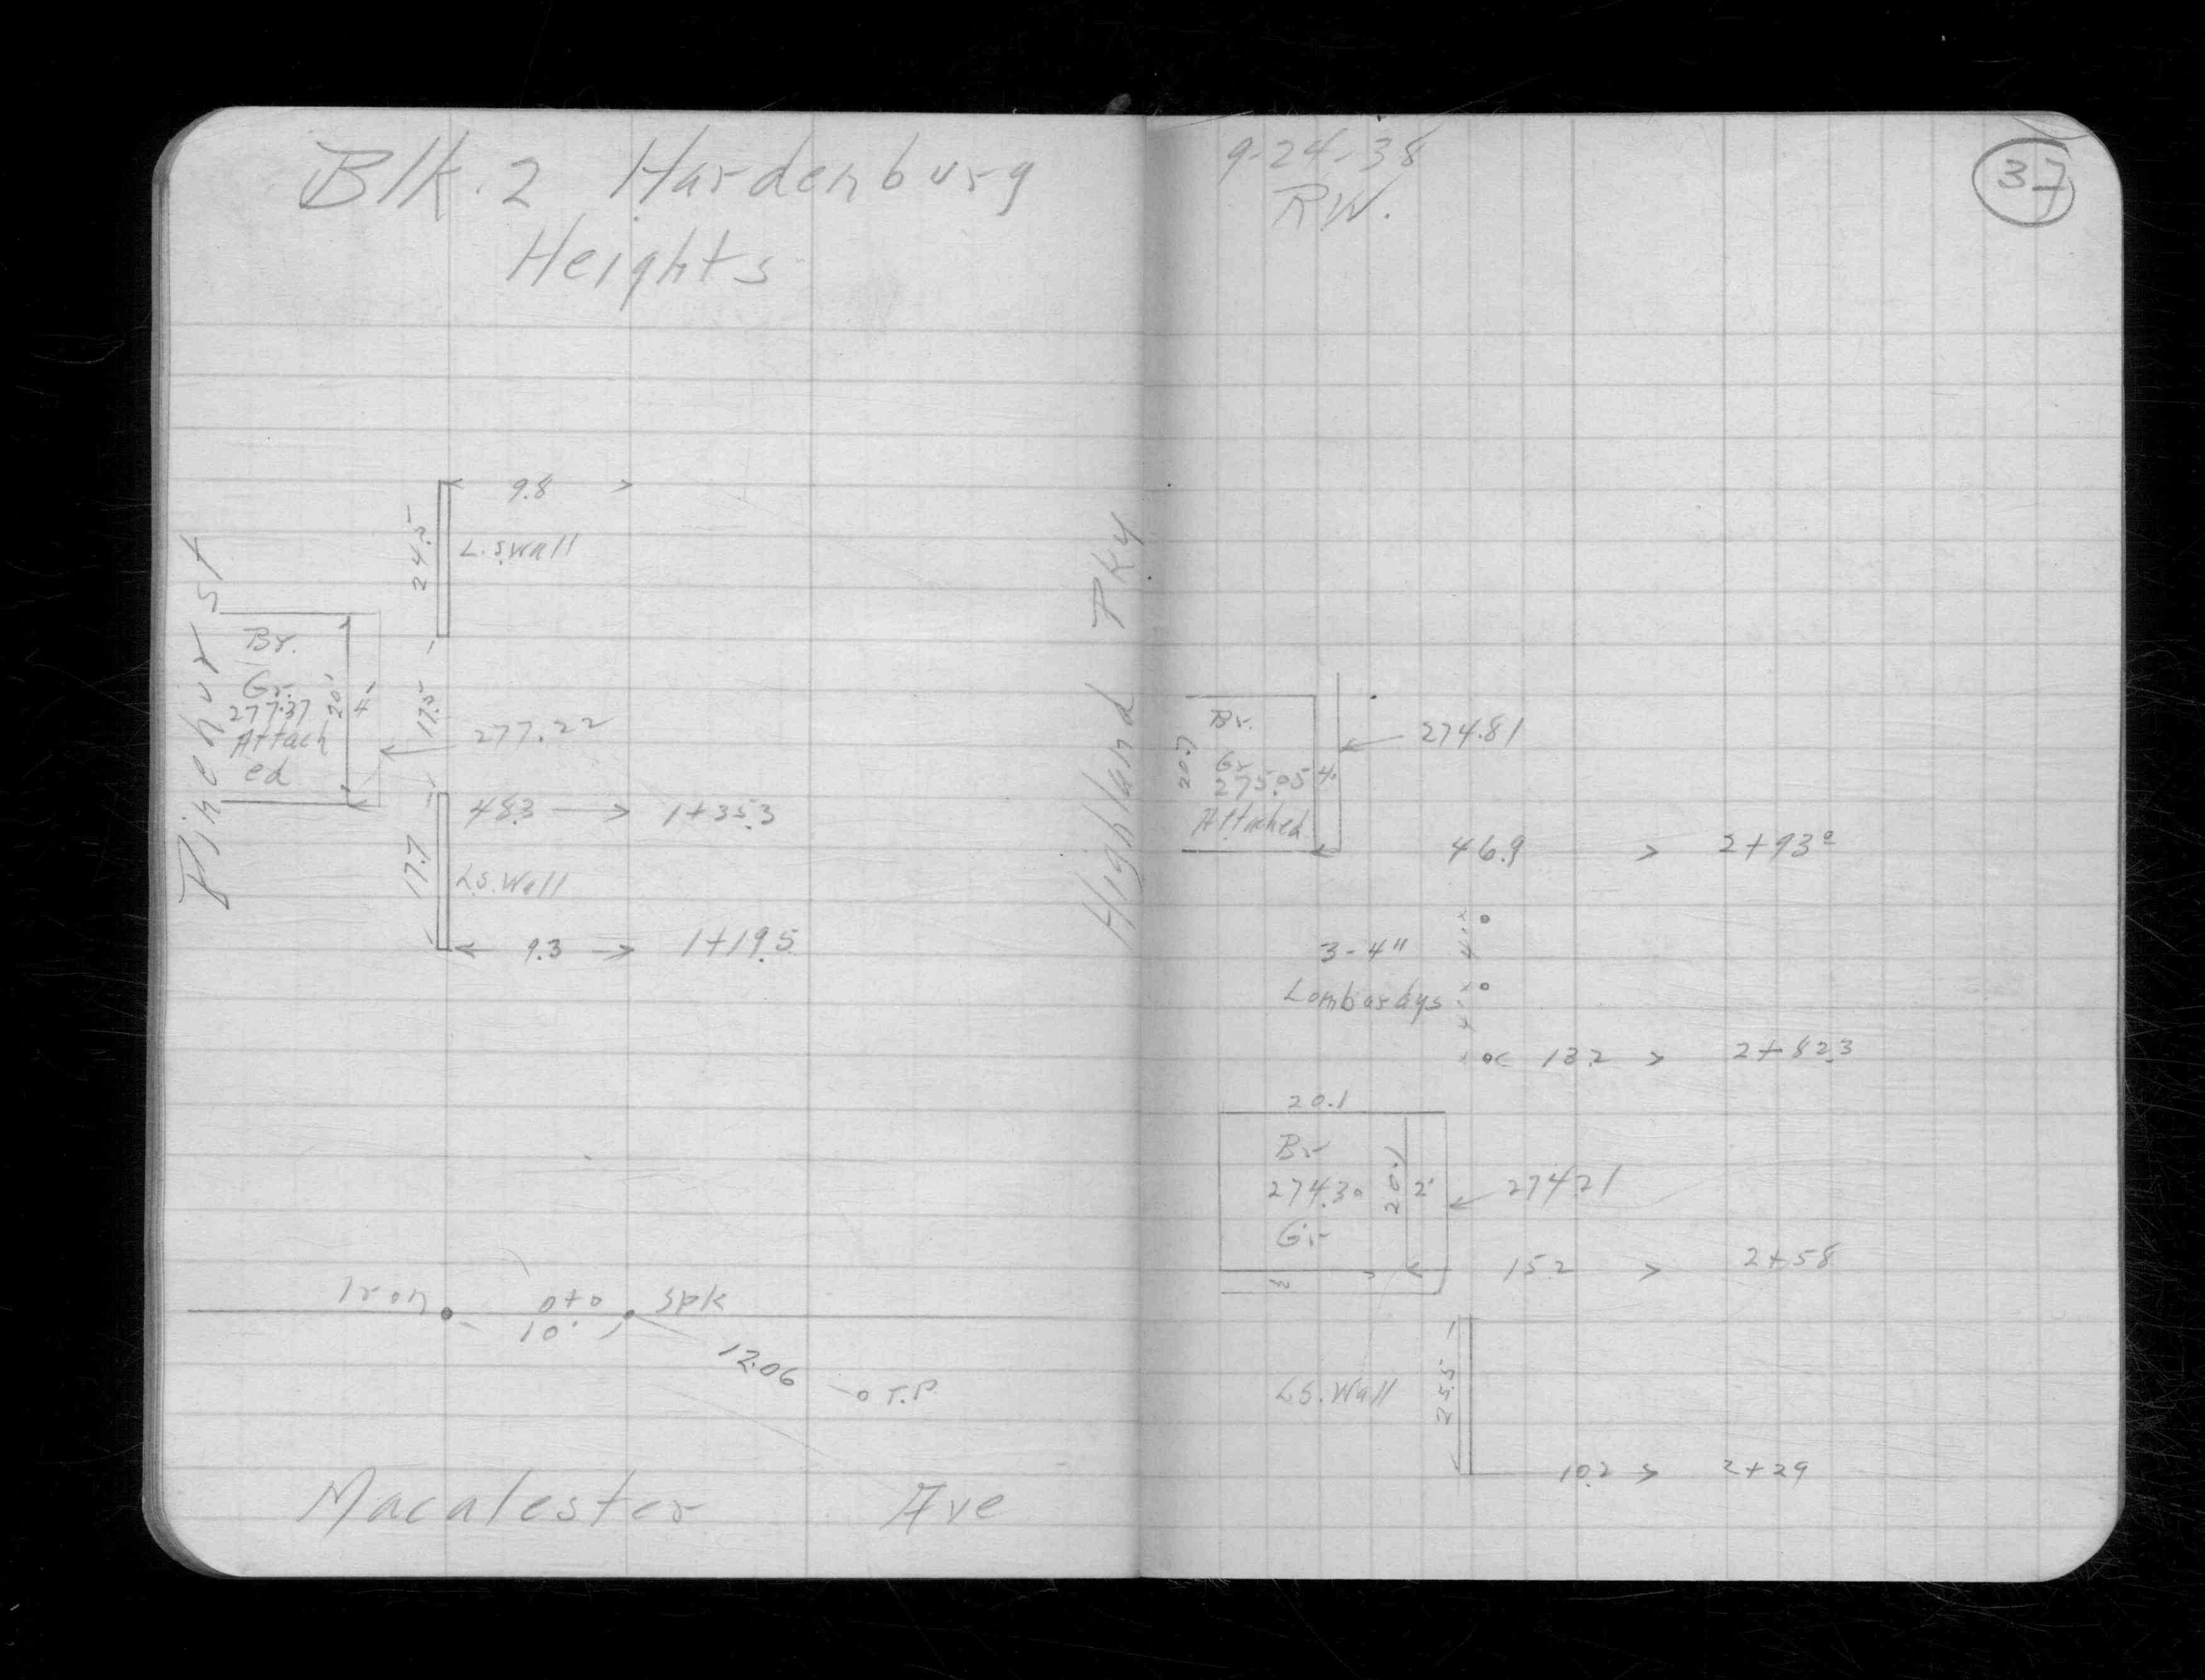 Blk. 2 Hardenburg
Heights
9.8
24.5
L.S. Wall
Pinehurst St
Br.
Gr.
277.37
Attach
ed
20'
4'
17.5
277.22
48.3 1+35.3
17.7
L.S. Wall
9.3 1+19.5
Iron 0+0 Spk
10'
12.06
T.P.
Macalester Ave
9-24-38
R.W.
37
Highland Pky
Br.
Gr.
275.05
Attached
20.7
4'
274.81
46.9 2+93.0
3-4"
Lombardys
13.2 2+82.3
20.1
Br
274.30
Gr
20.1
2'
274.21
2
15.2 2+58
L.S. Wall
25.5
10.2 2+29